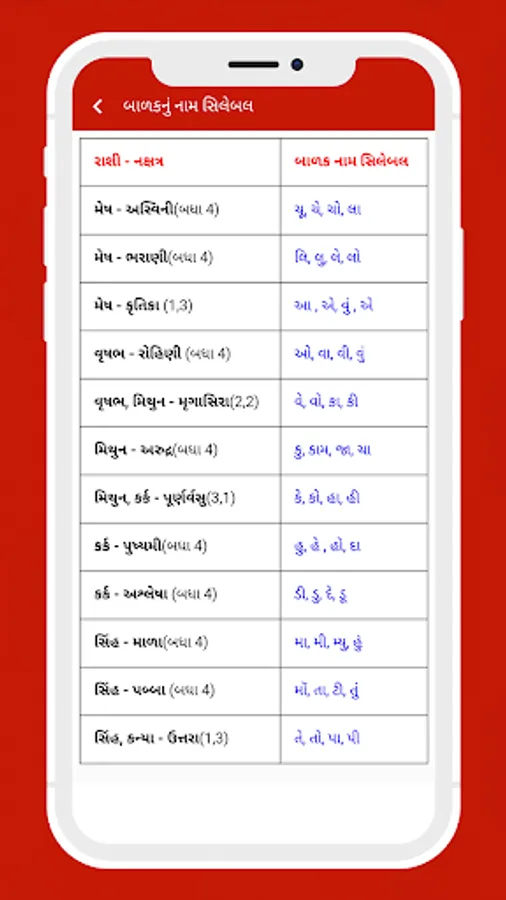 બાળકનું નામ સિલેબલ
રાશી - નક્ષત્ર બાળક નામ સિલેબલ
મેષ - અસ્વિની(બધા 4) ચૂ, ચે, ચો, લા
મેષ - ભરાણી(બધા 4) લિ, લુ, લે, લો
મેષ - કૃતિકા (1,3) આ , એ, વું , એ
વૃષભ - રોહિણી (બધા 4) ઓ, વા, વી, વું
વૃષભ, મિથુન - મૃગાસિરા(2,2) વે, વો, કા, કી
મિથુન - અરુદ્ર(બધા 4) કુ, કામ, જા, ચા
મિથુન, કર્ક - પૂર્ણર્વસુ(3,1) કે, કો, હા, હી
કર્ક - પુષ્યમી(બધા 4) હુ, હે , હો, દા
કર્ક - અશ્લેષા (બધા 4) ડી, ડુ, દે, ડૂ
સિંહ - માળા(બધા 4) મા, મી, મ્યુ, હું
સિંહ - પબ્બા (બધા 4) મૉ, તા, ટી, તું
સિંહ, કન્યા - ઉત્તરા(1,3) તે, તો, પા, પી